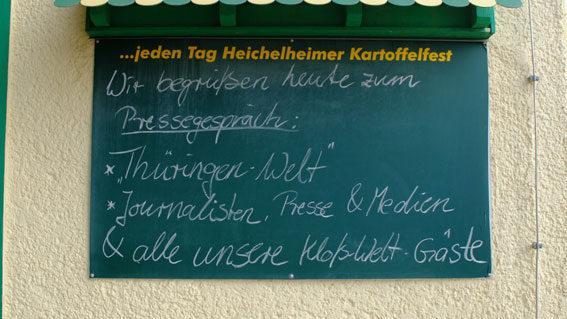 ...jeden Tag Heichelheimer Kartoffelfest
Wir begrüßen heute zum
Pressegespräch:
* „Thüringen-Welt"
* Journalisten, Presse & Medien
& alle unsere Kloß-Welt-Gäste